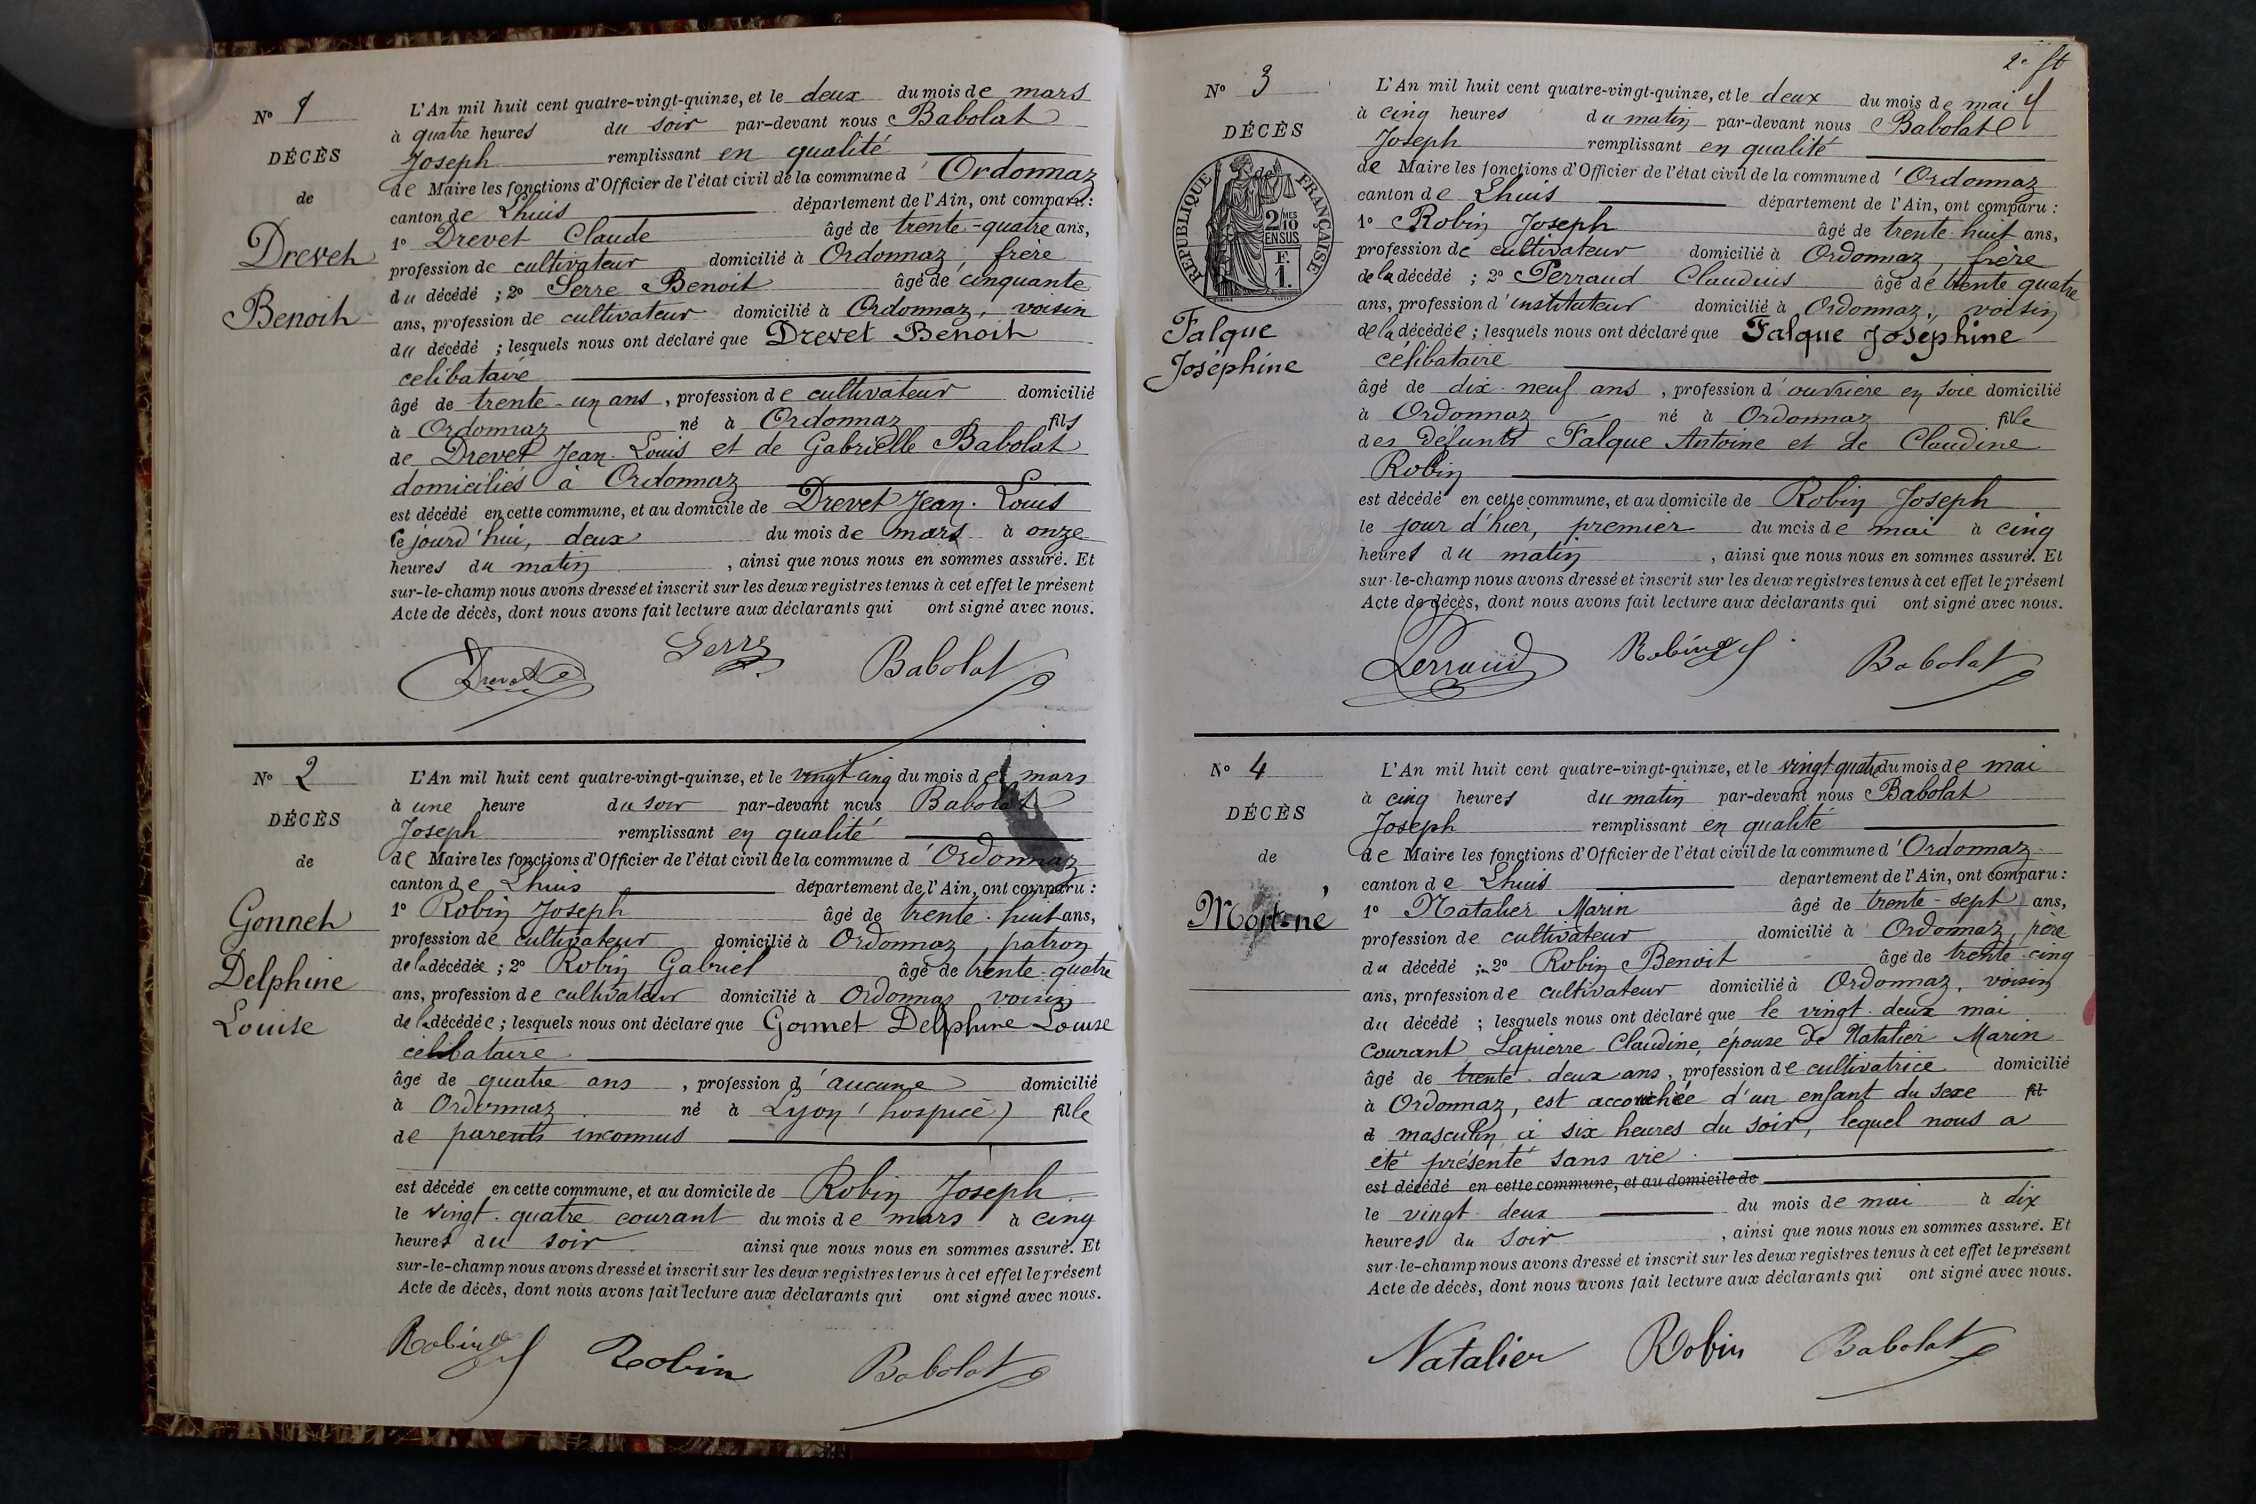 Nº 1
DÉCÈS
de
Drevet
Benoit
L'An mil huit cent quatre-vingt-quinze, et le deux du mois de mars
à quatre heures du soir par-devant nous Babolat
Joseph remplissant en qualité
de Maire les fonctions d'Officier de l'état civil de la commune d'Ordonnaz
canton de Lhuis département de l'Ain, ont comparu :
1º Drevet Claude âgé de trente-quatre ans,
profession de cultivateur domicilié à Ordonnaz, frère
du décédé ; 2º Serre Benoit âgé de cinquante
ans, profession de cultivateur domicilié à Ordonnaz, voisin
du décédé ; lesquels nous ont déclaré que Drevet Benoit
célibataire
âgé de trente-un ans, profession de cultivateur domicilié
à Ordonnaz né à Ordonnaz fils
de Drevet Jean-Louis et de Gabrielle Babolat
domiciliés à Ordonnaz
est décédé en cette commune, et au domicile de Drevet Jean-Louis
ce jourd'hui, deux du mois de mars à onze
heures du matin, ainsi que nous nous en sommes assuré. Et
sur-le-champ nous avons dressé et inscrit sur les deux registres tenus à cet effet le présent
Acte de décès, dont nous avons fait lecture aux déclarants qui ont signé avec nous.
Drevet Serre Babolat
Nº 2
DÉCÈS
de
Gonnet
Delphine
Louise
L'An mil huit cent quatre-vingt-quinze, et le vingt cinq du mois de mars
à une heure du soir par-devant nous Babolat
Joseph remplissant en qualité
de Maire les fonctions d'Officier de l'état civil de la commune d'Ordonnaz
canton de Lhuis département de l'Ain, ont comparu :
1º Robin Joseph âgé de trente-huit ans,
profession de cultivateur domicilié à Ordonnaz, patron
de la décédée ; 2º Robin Gabriel âgé de trente-quatre
ans, profession de cultivateur domicilié à Ordonnaz voisin
de la décédée ; lesquels nous ont déclaré que Gonnet Delphine Louise
célibataire
âgé de quatre ans, profession d'aucune domicilié
à Ordonnaz né à Lyon (hospice) fille
de parents inconnus
est décédé en cette commune, et au domicile de Robin Joseph
le vingt-quatre courant du mois de mars à cinq
heures du soir ainsi que nous nous en sommes assuré. Et
sur-le-champ nous avons dressé et inscrit sur les deux registres tenus à cet effet le présent
Acte de décès, dont nous avons fait lecture aux déclarants qui ont signé avec nous.
Robin Robin Babolat
2e ft
Nº 3
DÉCÈS
de
RÉPUBLIQUE FRANÇAISE
2/10 MES
EN SUS
F.
1.
Falque
Joséphine
L'An mil huit cent quatre-vingt-quinze, et le deux du mois de mai
à cinq heures du matin par-devant nous Babolat
Joseph remplissant en qualité
de Maire les fonctions d'Officier de l'état civil de la commune d'Ordonnaz
canton de Lhuis département de l'Ain, ont comparu :
1º Robin Joseph âgé de trente-huit ans,
profession de cultivateur domicilié à Ordonnaz, frère
de la décédé ; 2º Perraud Claudius âgé de trente quatre
ans, profession d'instituteur domicilié à Ordonnaz, voisin
de la décédée ; lesquels nous ont déclaré que Falque Joséphine
célibataire
âgé de dix-neuf ans, profession d'ouvrière en soie domicilié
à Ordonnaz né à Ordonnaz fille
des défunts Falque Antoine et de Claudine
Robin
est décédé en cette commune, et au domicile de Robin Joseph
le jour d'hier, premier du mois de mai à cinq
heures du matin, ainsi que nous nous en sommes assuré. Et
sur-le-champ nous avons dressé et inscrit sur les deux registres tenus à cet effet le présent
Acte de décès, dont nous avons fait lecture aux déclarants qui ont signé avec nous.
Perraud Robin Babolat
Nº 4
DÉCÈS
de
Mort-né
L'An mil huit cent quatre-vingt-quinze, et le vingt-quatre du mois de mai
à cinq heures du matin par-devant nous Babolat
Joseph remplissant en qualité
de Maire les fonctions d'Officier de l'état civil de la commune d'Ordonnaz
canton de Lhuis département de l'Ain, ont comparu :
1º Natalier Marin âgé de trente-sept ans,
profession de cultivateur domicilié à Ordonnaz, père
du décédé ; 2º Robin Benoit âgé de trente-cinq
ans, profession de cultivateur domicilié à Ordonnaz, voisin
du décédé ; lesquels nous ont déclaré que le vingt-deux mai
courant, Lapierre Claudine, épouse de Natalier Marin
âgé de trente-deux ans, profession de cultivatrice domicilié
à Ordonnaz, est accouchée d'un enfant du sexe fil
d masculin à six heures du soir, lequel nous a
été présenté sans vie.
est décédé en cette commune, et au domicile de
le vingt-deux du mois de mai à dix
heures du soir, ainsi que nous nous en sommes assuré. Et
sur-le-champ nous avons dressé et inscrit sur les deux registres tenus à cet effet le présent
Acte de décès, dont nous avons fait lecture aux déclarants qui ont signé avec nous.
Natalier Robin Babolat